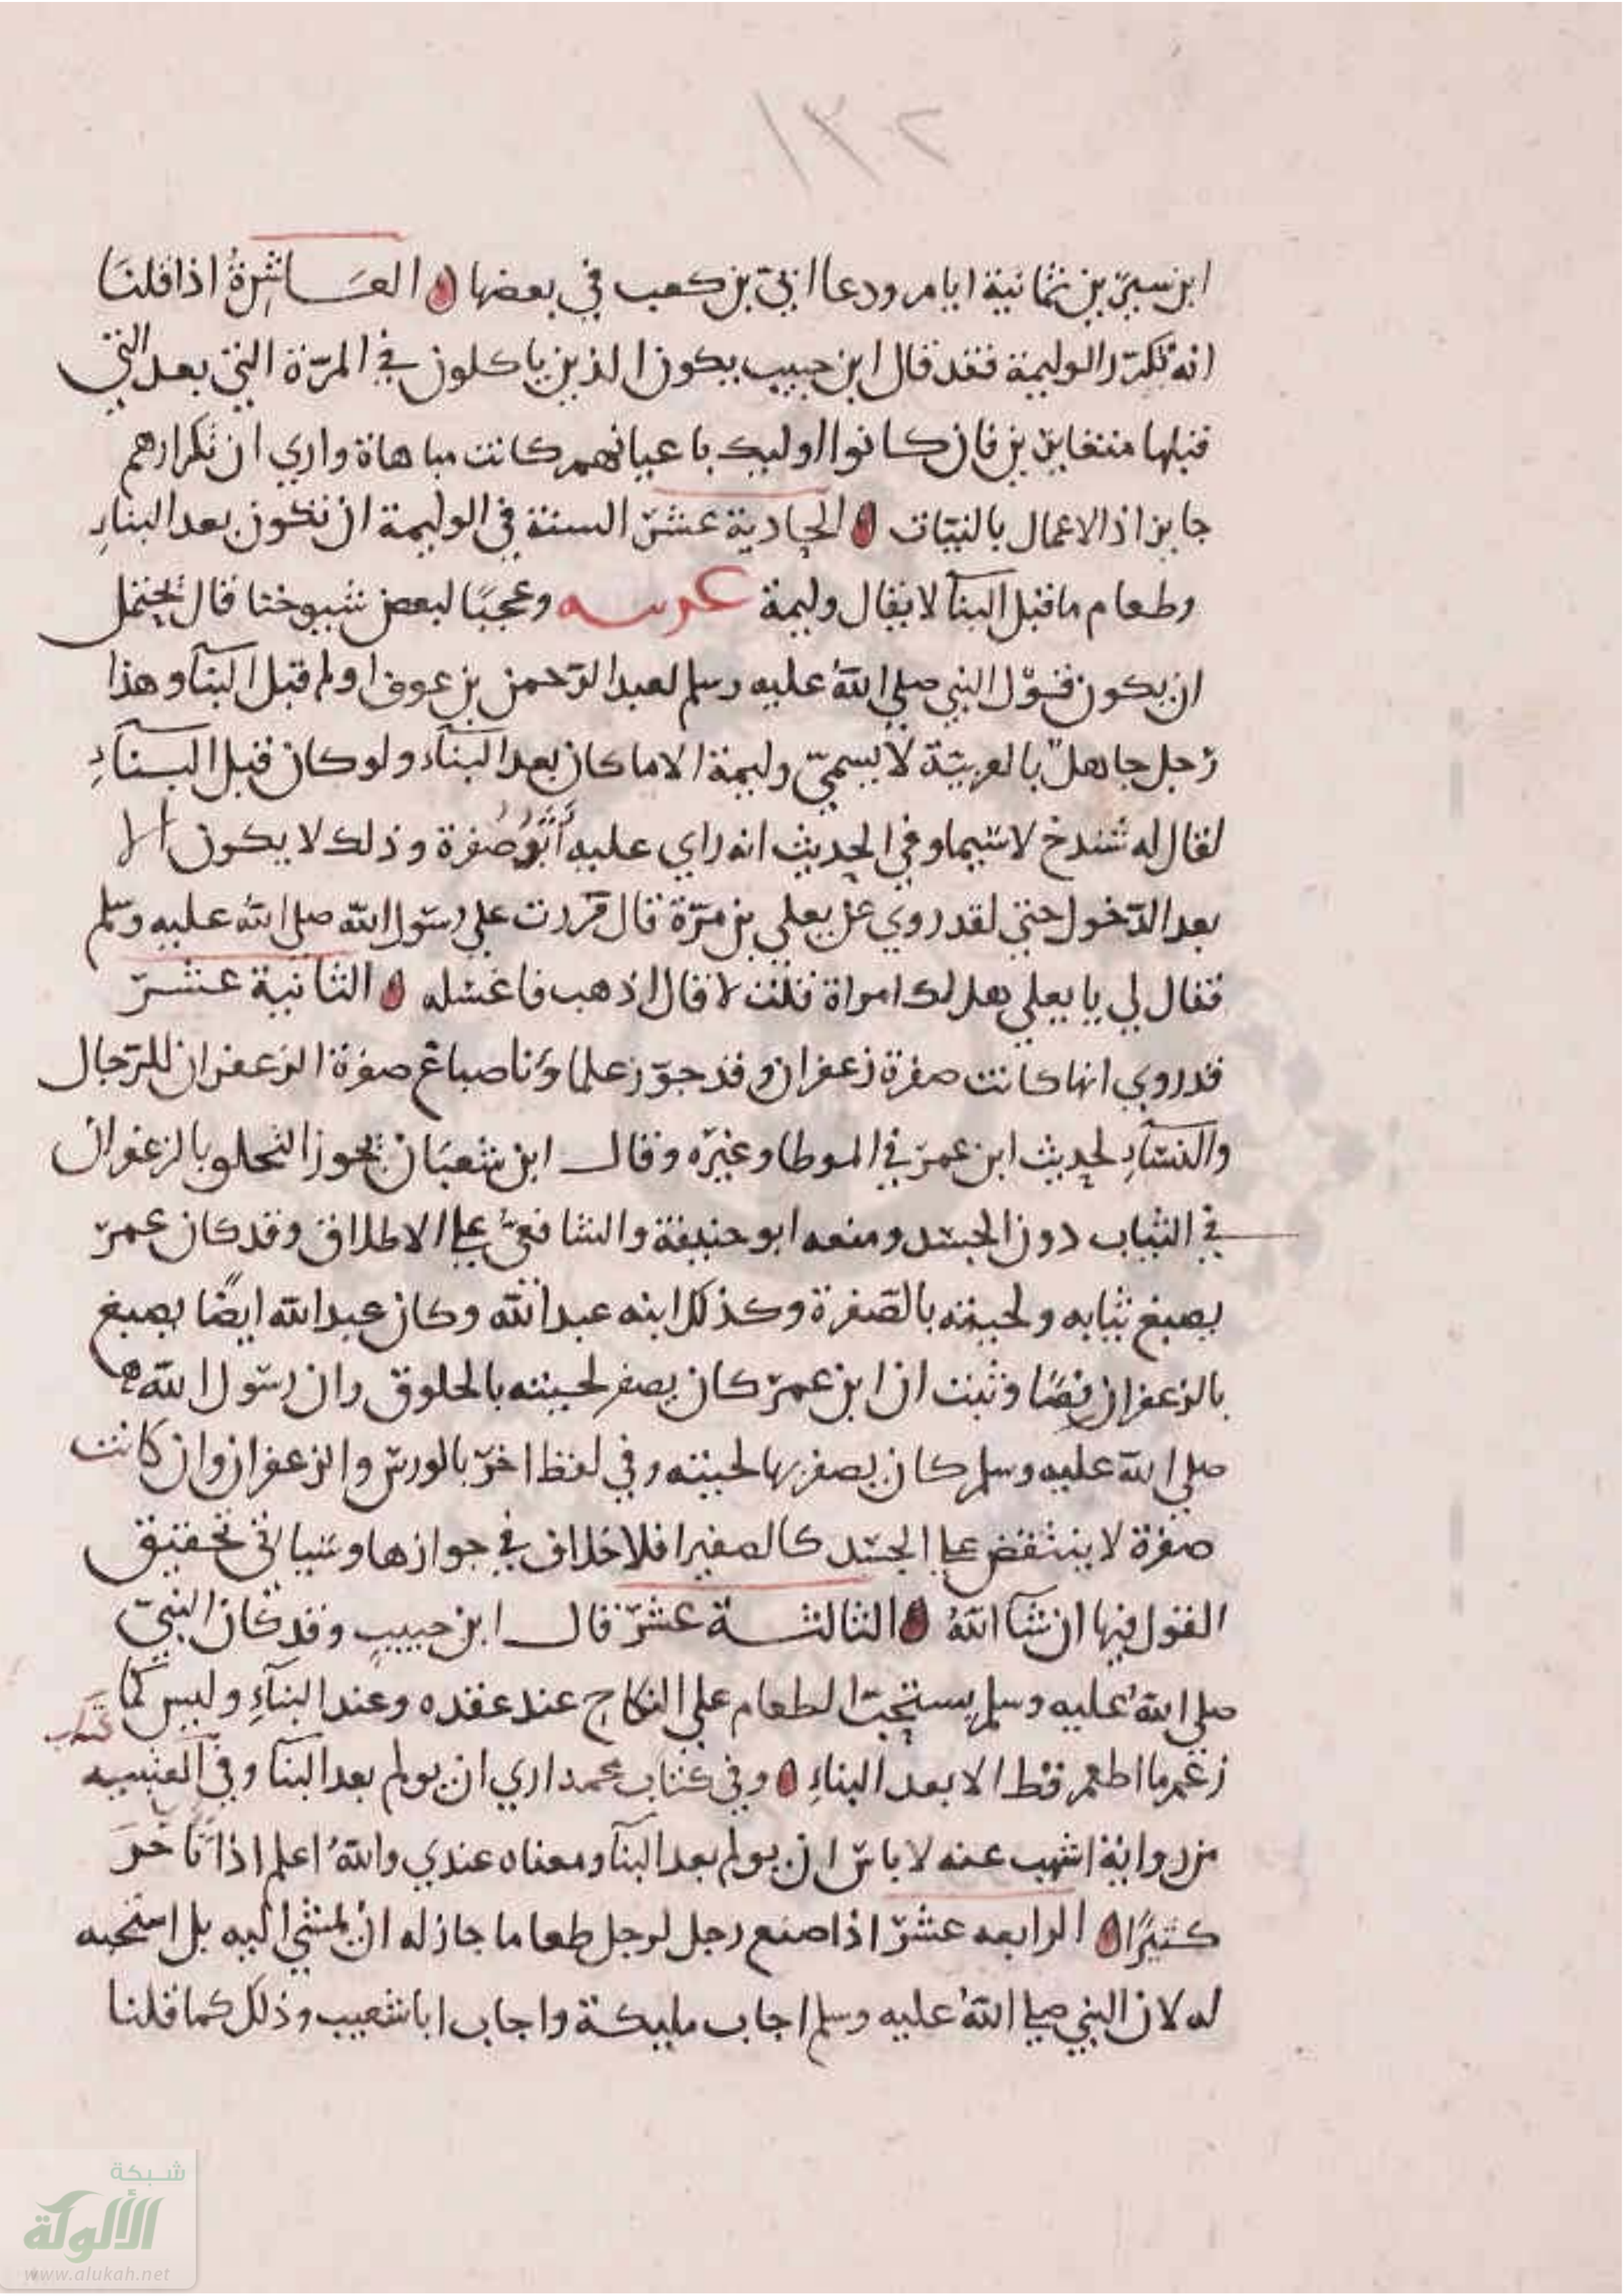 ١٣٢
ابن سيرين ثمانية ايام ودعا ابي بن كعب في بعضها العاشرة اذا قلنا
انه تكرر الوليمة فقد قال ابن حبيب يكون الذين ياكلون في المرة التي بعد التي
قبلها متغايرين فان كانوا اوليك باعيانهم كانت مباهاة واري ان تكرارهم
جايز اذ الاعمال بالنيات الحادية عشر السنة في الوليمة ان تكون بعد البناء
وطعام ما قبل البنآ لا يقال وليمة عرسه وعجبا لبعض شيوخنا قال يحتمل
ان يكون قول النبي صلي الله عليه وسلم لعبد الرحمن بن عوف اولم قبل البنآ وهذا
رجل جاهل بالعربية لا يسمي وليمة الا ما كان بعد البنآء ولو كان قبل البنآء
لقال له شندخ لا سيما وفي الحديث انه راي عليه أثر صفرة وذلك لا يكون الا
بعد الدخول حتي لقد روي عن يعلي بن مرة قال مررت علي رسول الله صلي الله عليه وسلم
فقال لي يا يعلي هل لك امراة قلت لا قال اذهب فاغسله الثانية عشر
قد روي انها كانت صفرة زعفران وقد جوز علماؤنا صباغ صفرة الزعفران للرجال
والنسآء لحديث ابن عمر في الموطا وغيره وقال ابن شعبان يجوز التحلو بالزعفران
في الثياب دون الجسد ومنعه ابو حنيفة والشافعي علي الاطلاق وقد كان عمر
يصبغ ثيابه ولحيته بالصفرة وكذلك ابنه عبد الله وكان عبد الله ايضا يصبغ
بالزعفران نصا وثبت ان ابن عمر كان يصفر لحيته بالخلوق وان رسول الله
صلي الله عليه وسلم كان يصفر بها لحيته وفي لفظ اخر بالورس والزعفران وان كانت
صفرة لا ينتفض علي الجسد كالصفيرا فلا خلاف في جوازها وسياتي تحقيق
القول فيها ان شآ الله الثالثة عشر قال ابن حبيب وقد كان النبي
صلي الله عليه وسلم يستحب الطعام علي النكاح عند عقده وعند البنآء وليس كما
كتاب
زعم ما اطعم قط الا بعد البناء وفي كتاب محمد اري ان يولم بعد البنآ وفي العتبيه
من رواية اشهب عنه لا باس ان يولم بعد البنآ ومعناه عندي والله اعلم اذا تأخر
كثيرا الرابعه عشر اذا صنع رجل لرجل طعاما جاز له ان يمشي اليه بل استحبه
له لان النبي صلي الله عليه وسلم اجاب مليكة واجاب ابا شعيب وذلك كما قلنا
شبكة
الألوكة
www.alukah.net